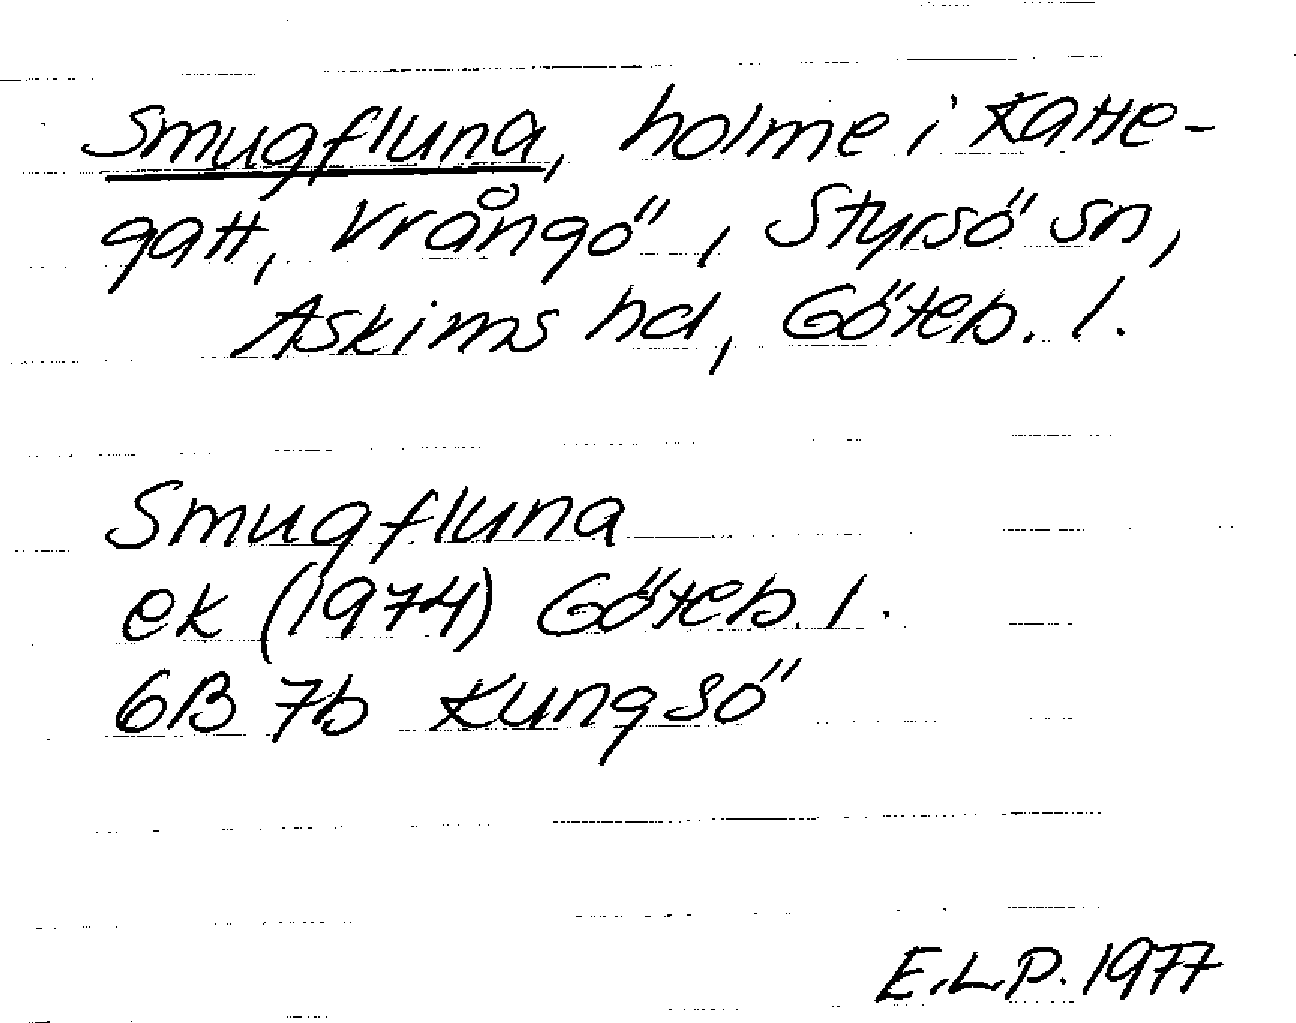 Smugfluna, holme i Katte-
gatt, Vrångö, Styrsö sn,
Askims hd, Göteb. l.
Smugfluna
ek (1974) Göteb. l.
6B 7b Kungsö
E.L.P. 1977